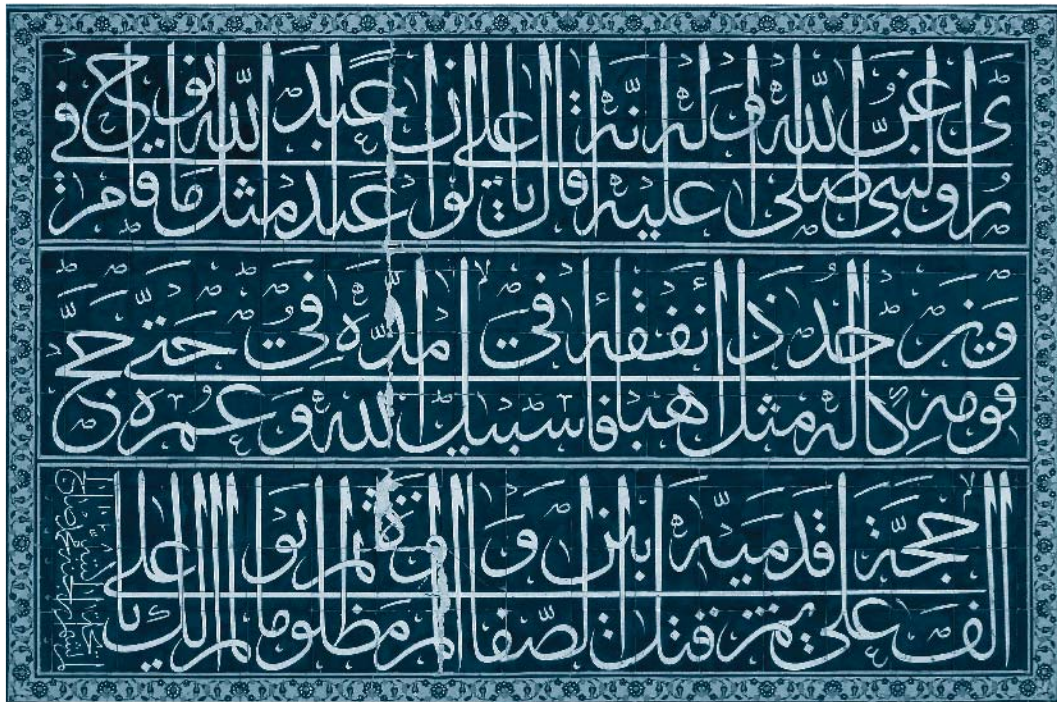 روي عن النبي صلى الله عليه وآله أنه قال يا علي لو أن عبدا عبد الله مثل ما قام نوح في
قومه وكان له مثل أحد ذهبا فأنفقه في سبيل الله ومد في عمره حتى حج
ألف حجة على قدميه ثم قتل بين الصفا والمروة مظلوما ثم لم يوالك يا علي